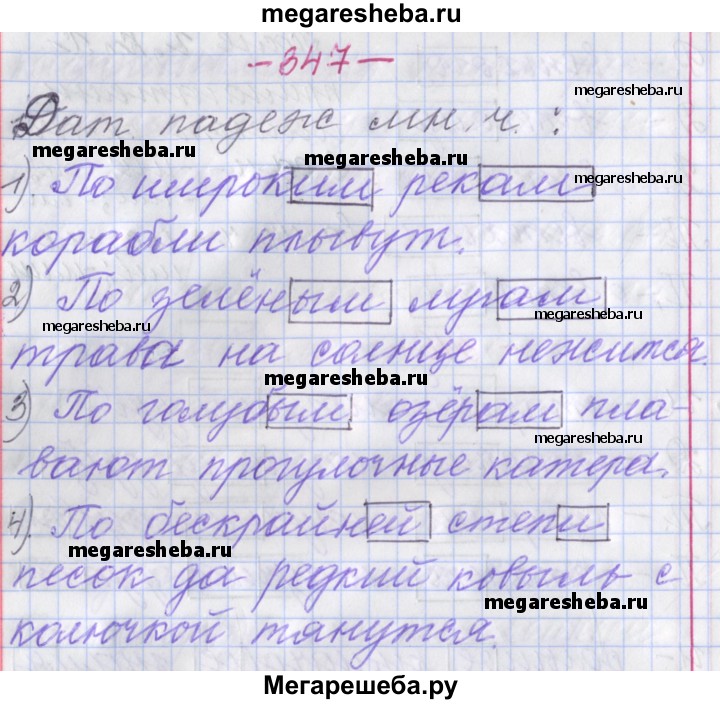 megaresheba.ru
-347-
megaresheba.ru
Дат падеж мн. ч. :
megaresheba.ru
megaresheba.ru
1). По широким рекам
megaresheba.ru
корабли плывут.
2) По зелёным лугам
megaresheba.ru
megaresheba.ru
трава на солнце нежится.
megaresheba.ru
3) По голубым озёрам пла-
megaresheba.ru
вают прогулочные катера.
4). По бескрайней степи
megaresheba.ru
песок да редкий ковыль с
megaresheba.ru
колючкой тянутся.
Мегарешеба.ру